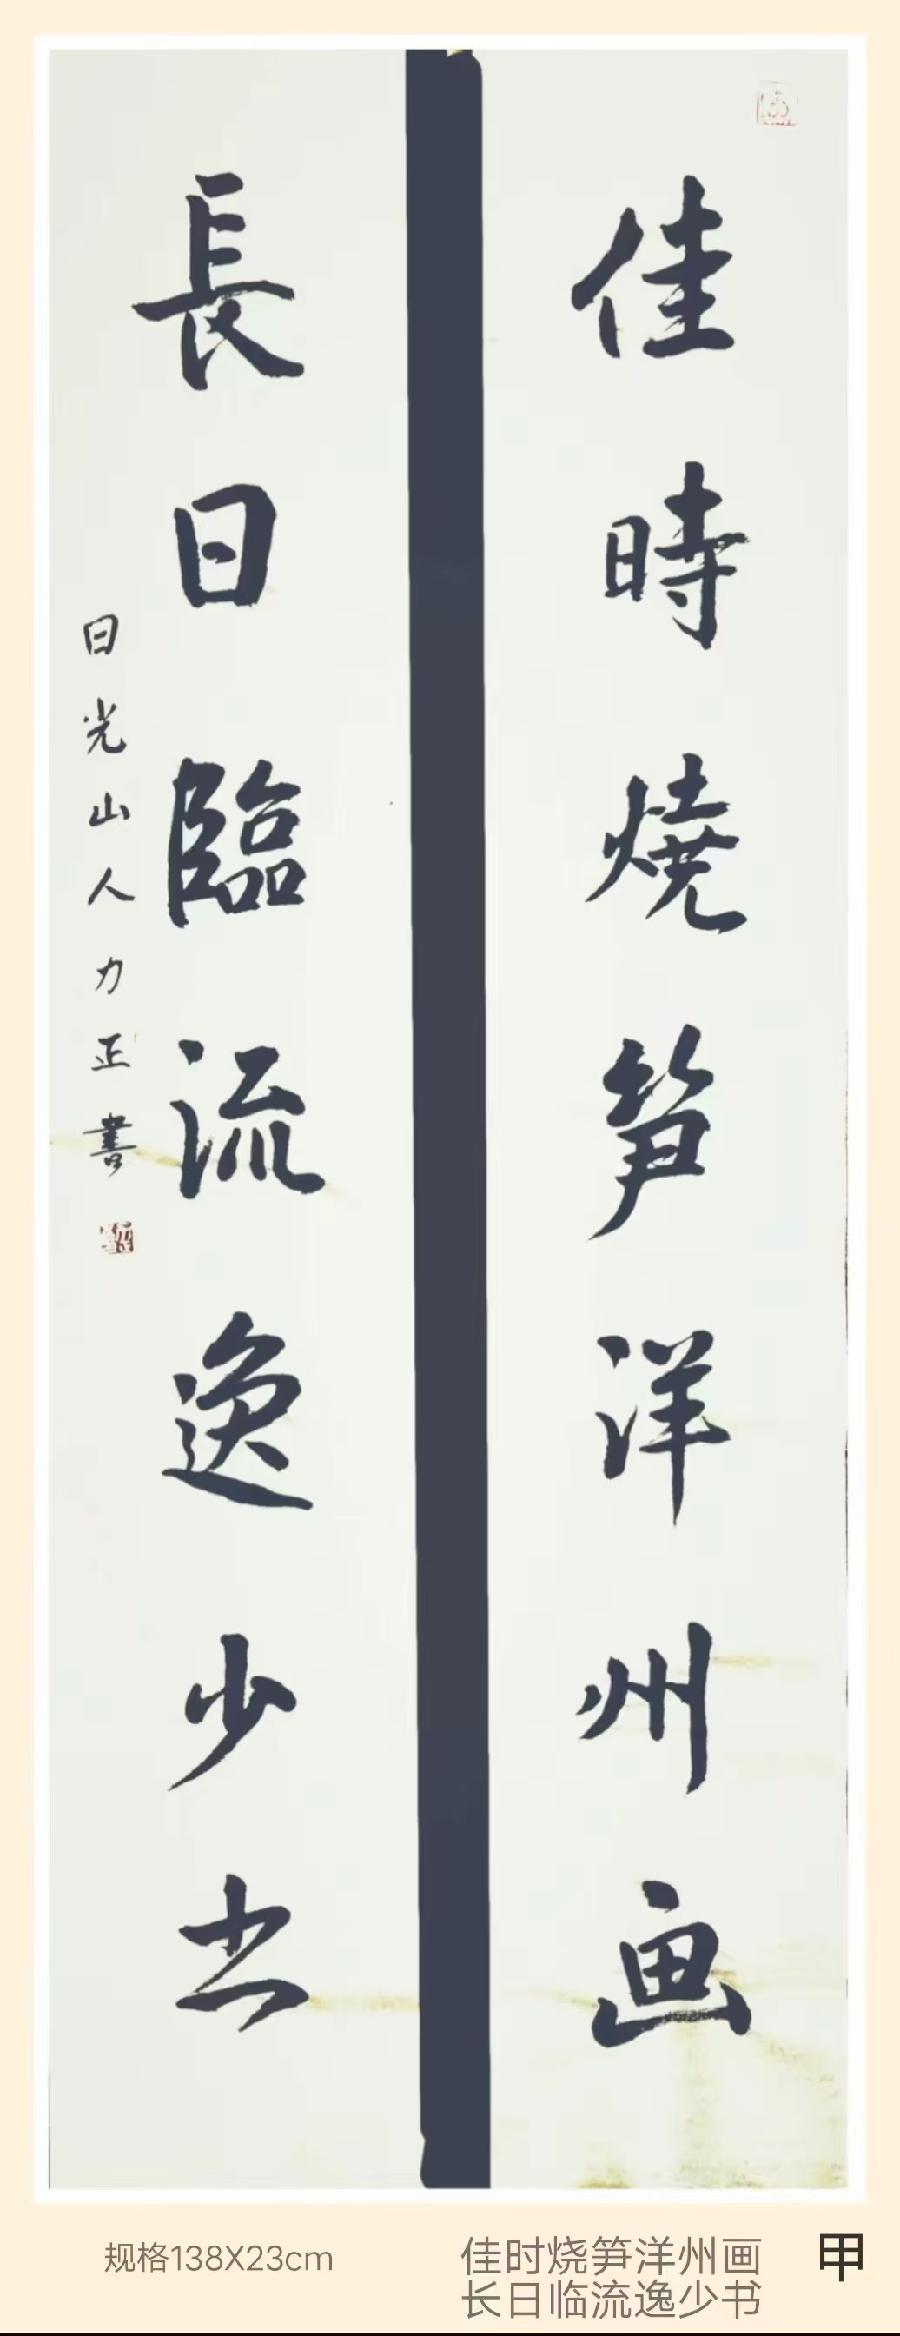 佳時燒笋洋州画
長日臨流逸少书
日光山人力正書
规格138X23cm
佳时烧笋洋州画
长日临流逸少书
甲